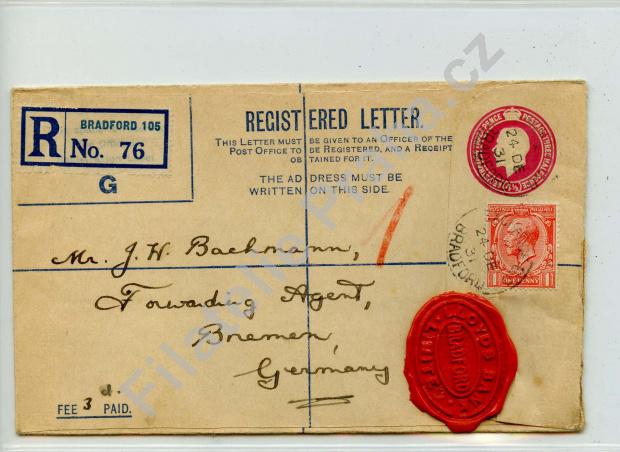 REGISTERED LETTER.
THIS LETTER MUST BE GIVEN TO AN OFFICER OF THE
POST OFFICE TO BE REGISTERED, AND A RECEIPT
OBTAINED FOR IT.
THE ADDRESS MUST BE
WRITTEN ON THIS SIDE.
R
BRADFORD 105
No. 76
G
24 DE
31
Mr. J. H. Bachmann,
Forwading Agent,
Bremen,
Germany
POSTAGE REVENUE
1 ONE PENNY 1
BRADFORD
24 DE
31
LLOYDS BANK LIMITED
BRADFORD
d.
FEE 3 PAID.
Filatelie Praha.cz